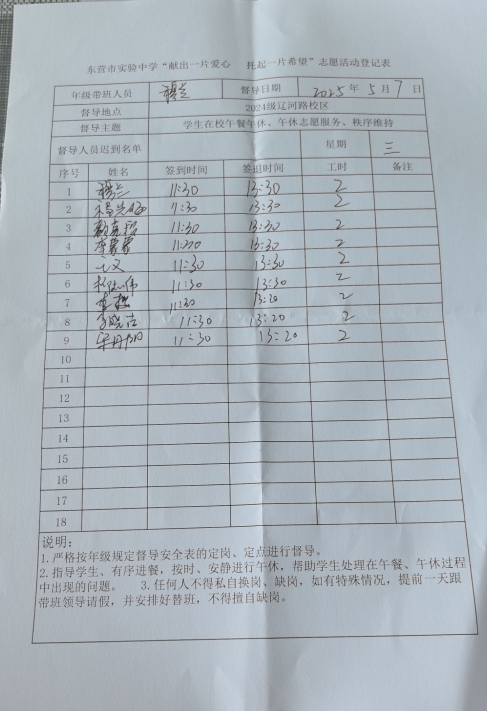 东营市实验中学“献出一片爱心 托起一片希望”志愿活动登记表
年级带班人员 督导日期 2025年5月7日
督导地点 2024级辽河路校区
督导主题 学生在校午餐午休、午休志愿服务、秩序维持
督导人员迟到名单 星期 三
序号 姓名 签到时间 签退时间 工时 备注
1 11:30 13:30 2
2 11:30 13:30 2
3 11:30 13:30 2
4 11:30 13:30 2
5 11:30 13:30 2
6 11:30 13:30 2
7 11:30 13:20 2
8 11:30 13:20 2
9 11:30 13:20 2
10
11
12
13
14
15
16
17
18
说明：
1.严格按年级规定督导安全表的定岗、定点进行督导。
2.指导学生、有序进餐，按时、安静进行午休，帮助学生处理在午餐、午休过程
中出现的问题。 3.任何人不得私自换岗、缺岗，如有特殊情况，提前一天跟
带班领导请假，并安排好替班，不得擅自缺岗。